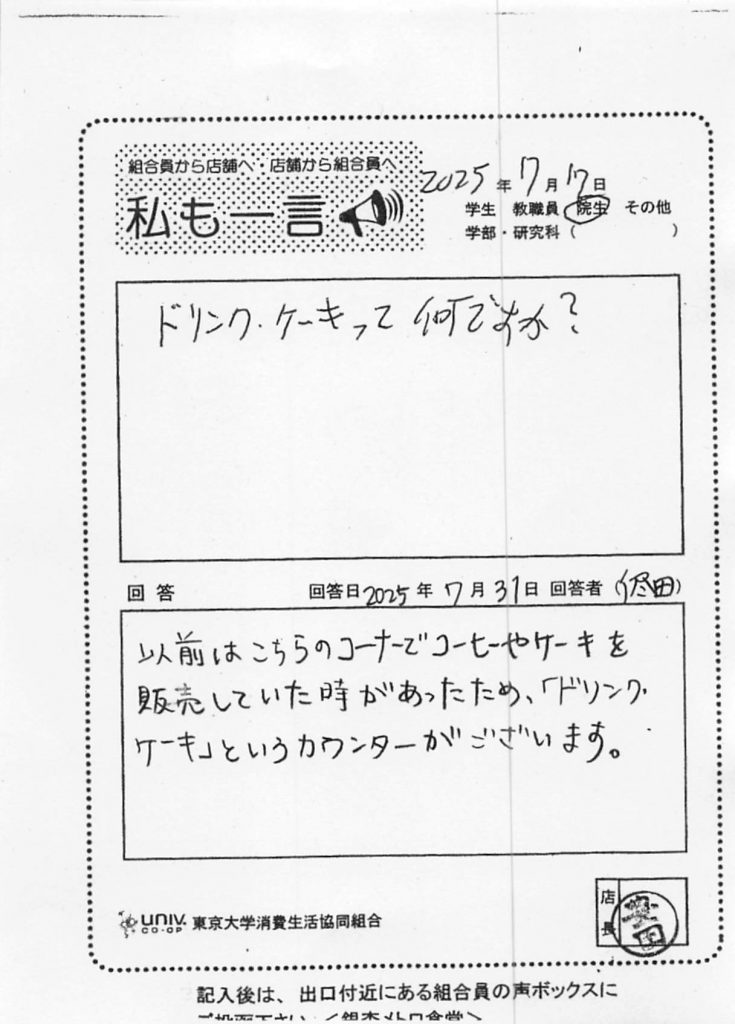 組合員から店舗へ・店舗から組合員へ
私も一言
2025年 7月 17日
学生 教職員 院生 その他
学部・研究科 ( )
ドリンク・ケーキって何ですか?
回答 回答日 2025年 7月 31日 回答者 ( 田)
以前はこちらのコーナーでコーヒーやケーキを
販売していた時があったため、「ドリンク・
ケーキ」というカウンターがございます。
UNIV. CO-OP 東京大学消費生活協同組合
店長
記入後は、出口付近にある組合員の声ボックスに